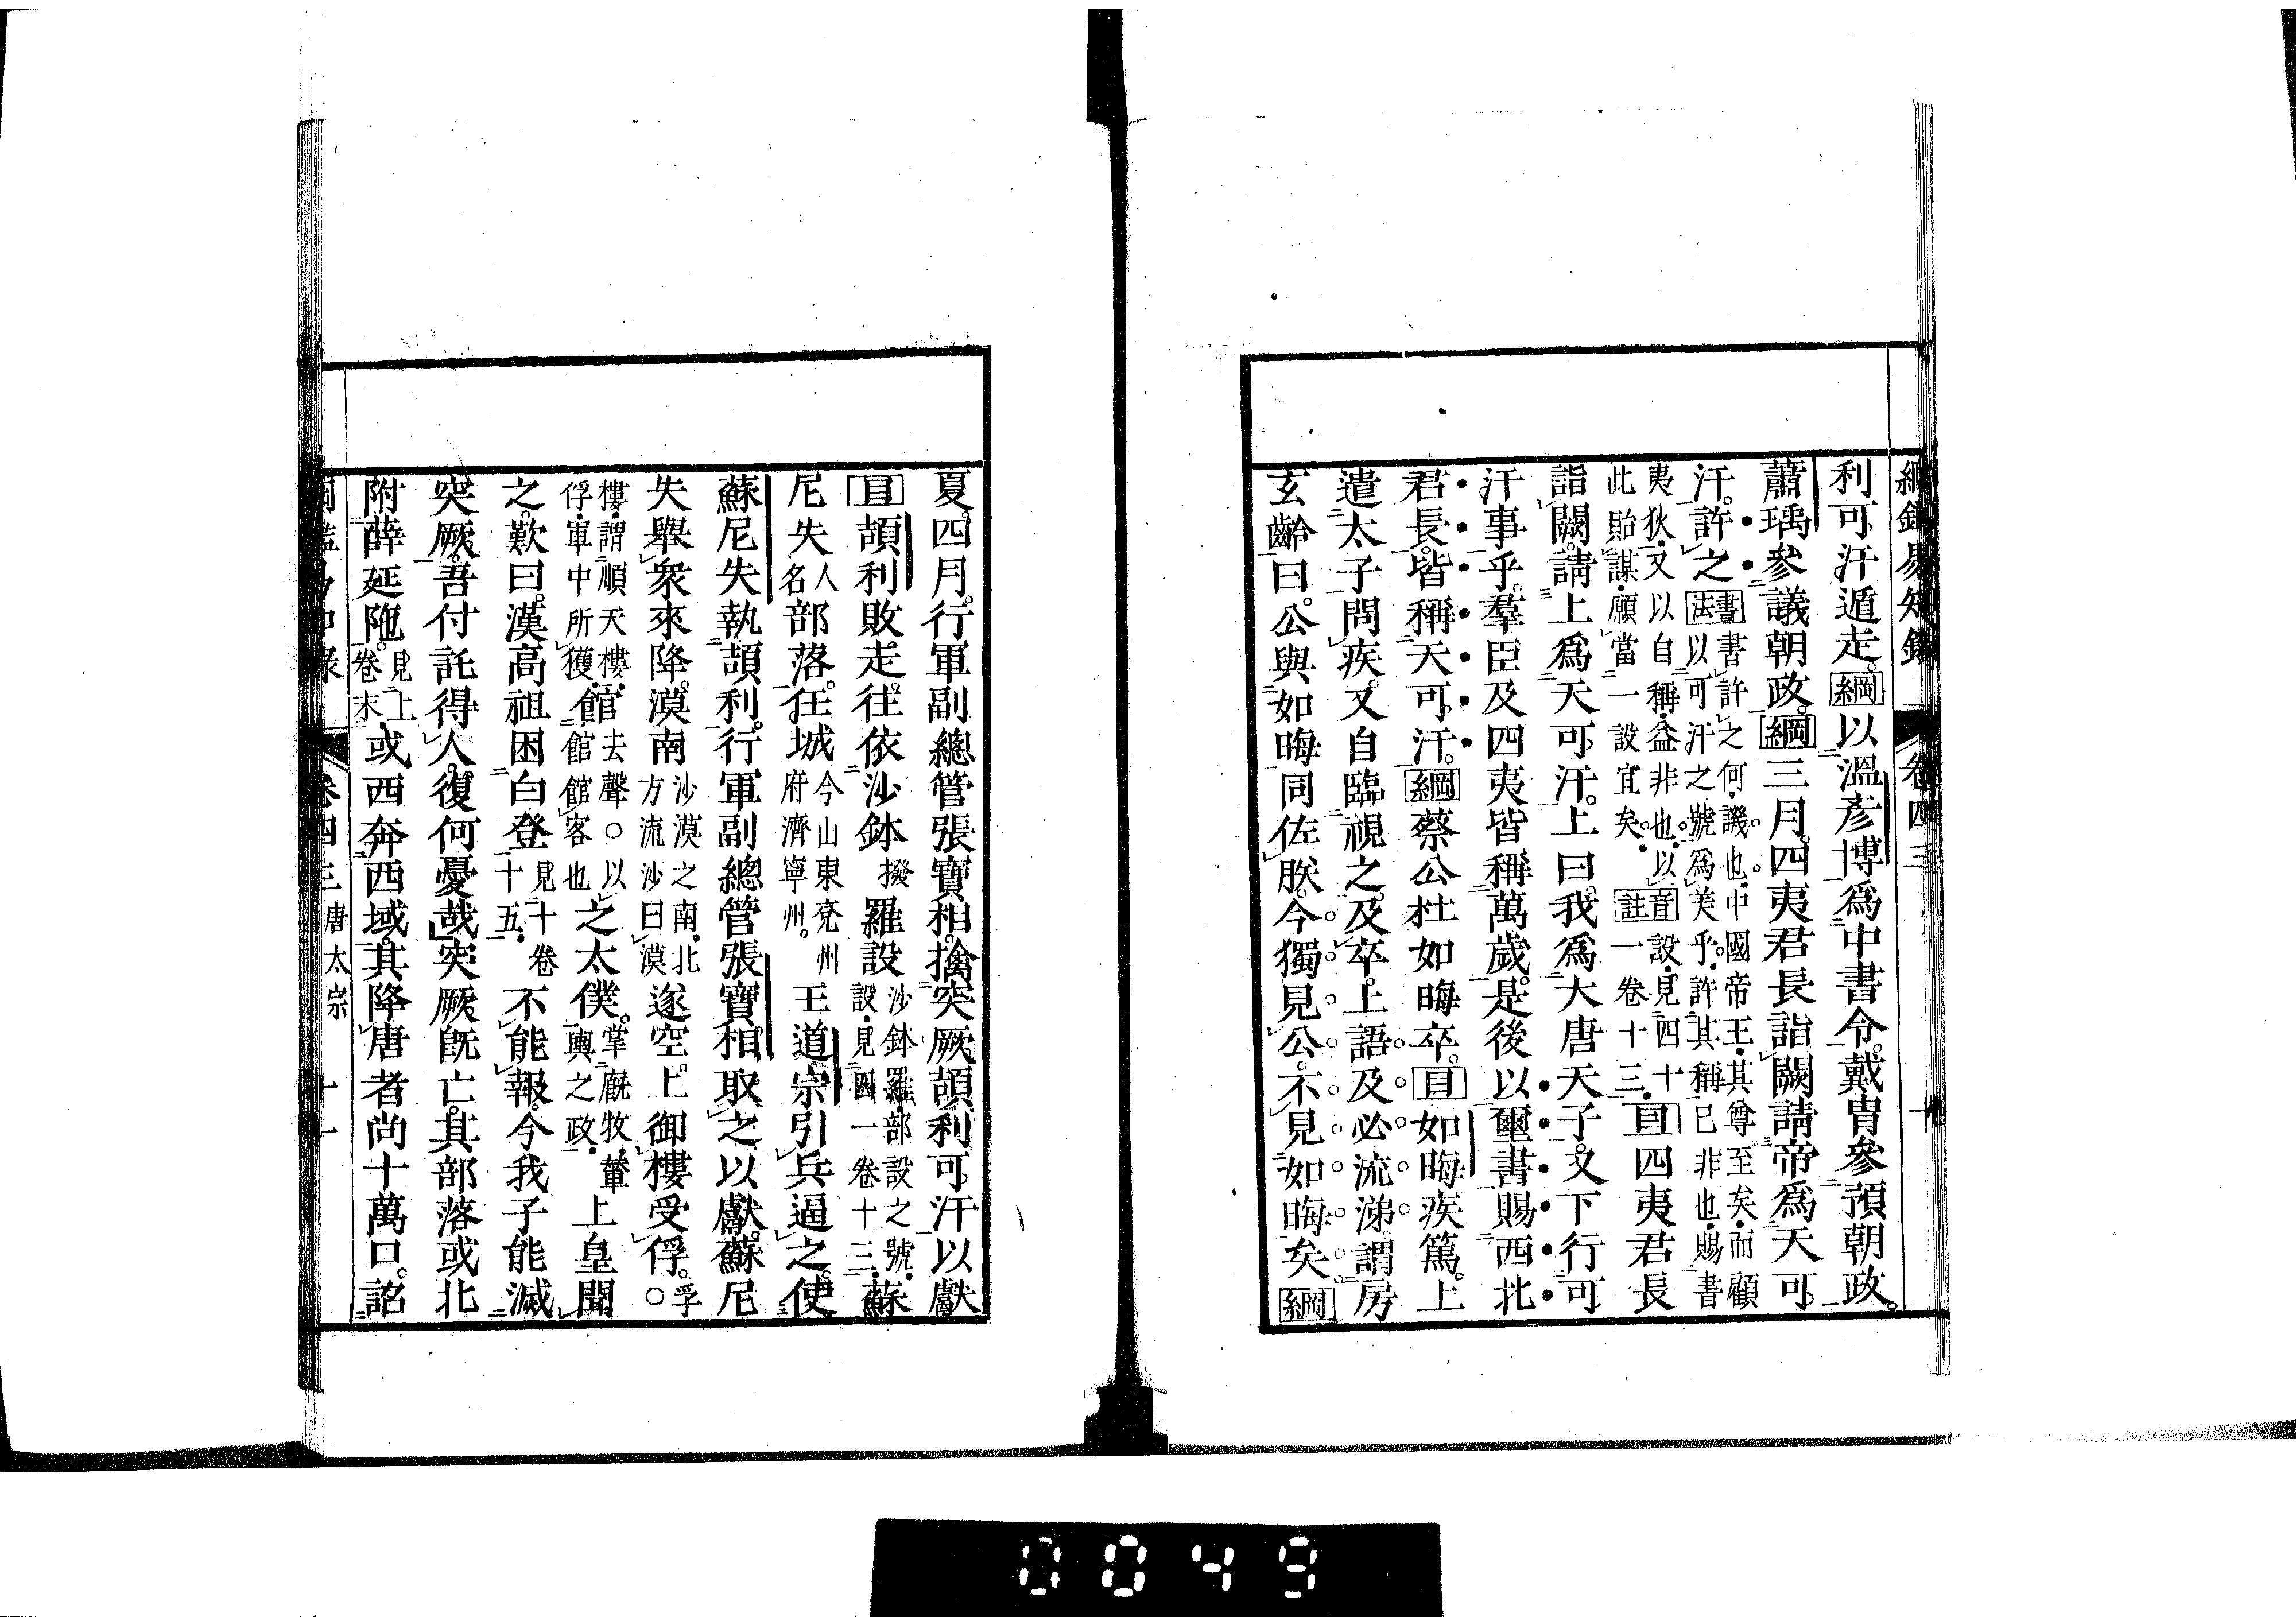 綱鑑易知錄 卷四三
利可汗遁走。綱以溫彥博爲中書令。戴冑參預朝政。
蕭瑀參議朝政。綱三月。四夷君長詣闕請帝爲天可
汗。許之書法書許之何。譏也。中國帝王。其尊至矣。而顧以可汗之號爲美乎。許其稱已非也。賜書
夷狄。又以自稱。益非也。以此貽謀。願當一設宜矣。音註設。見四十一卷十三。目四夷君長
詣闕。請上爲天可汗。上曰。我爲大唐天子。又下行可
汗事乎。羣臣及四夷皆稱萬歲。是後以璽書賜西北
君長。皆稱天可汗。綱蔡公杜如晦卒。目如晦疾篤。上
遣太子問疾。又自臨視之。及卒。上語及必流涕。謂房
玄齡曰。公與如晦同佐朕。今獨見公。不見如晦矣綱
夏。四月。行軍副總管張寶相。擒突厥頡利可汗以獻
目頡利敗走。往依沙鉢撥羅設沙鉢羅。部設之號。設。見四一卷十三。蘇
尼失人名部落。任城今山東兗州府濟寧州。王道宗引兵逼之。使
蘇尼失執頡利。行軍副總管張寶相取之以獻。蘇尼
失舉衆來降。漠南沙漠之南。北方流沙曰漠遂空。上御樓受俘。孚○
樓。謂順天樓。俘。軍中所獲。館官去聲○以館館客也之太僕。掌廐牧。輦輿之政。上皇聞
之。歎曰。漢高祖困白登見十卷十五。不能報。今我子能滅
突厥。吾付託得人。復何憂哉。突厥旣亡。其部落或北
附薛延陁。見上卷末。或西奔西域。其降唐者尚十萬口。詔
卷四三 唐太宗 十一
0049